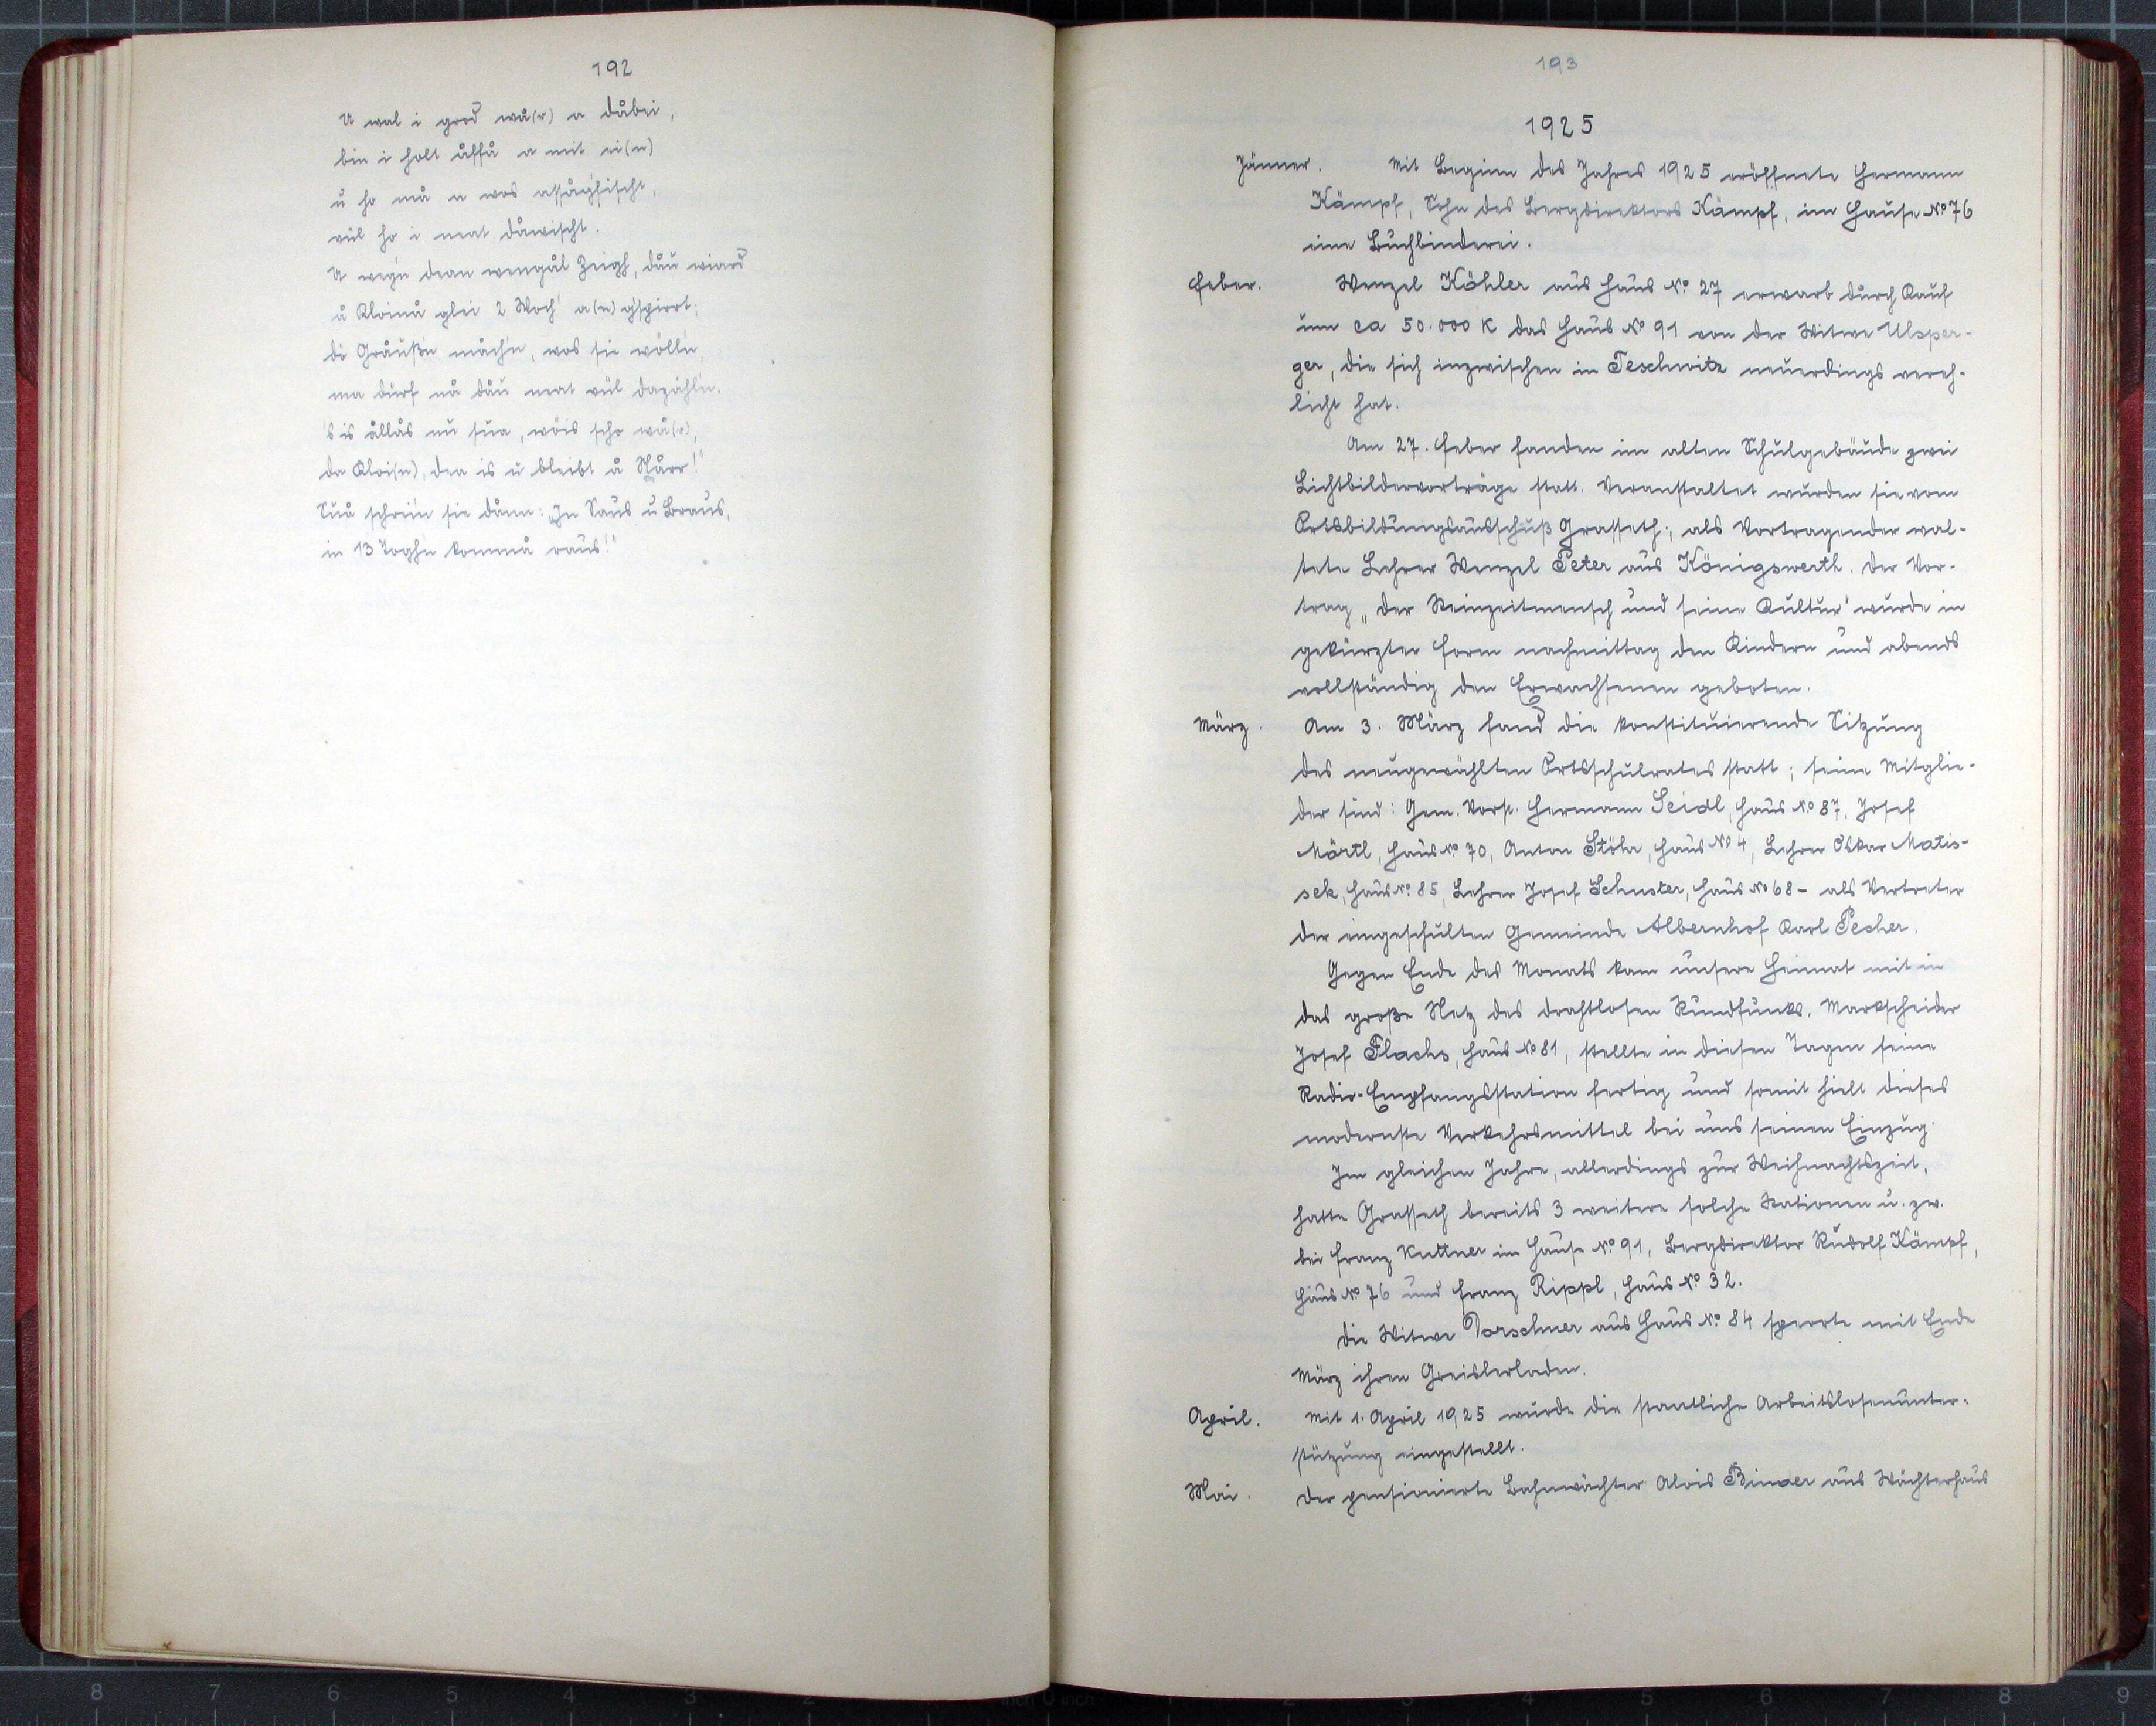 192
U wal i grod wå(r) a dåbei,
bin i holt åffå a mit ei(n)
u ho må a wos assåg'fischt,
vül ho i neat dåwischt.
U weg'n dean wengål Zeigh, dåu wiard
å Kloinå glei 2 Woch' a(n)g'spirrt;
di Gråuß'n måch'n, wos sie wölln,
ma dürf nå dåu neat vül dazähl'n.
's is ållås nu sua, wöis scho wå(r),
da Kloi(n), dea is u bleibt å Nårr!"
Suå schrei'n sie dånn: „In Saus u Braus,
in 13 Togh'n kommå raus!"
193
1925
Jänner. Mit Beginn des Jahres 1925 eröffnete Hermann
Kämpf, Sohn des Bergdirektors Kämpf, im Hause No 76
eine Buchbinderei.
Feber. Wenzel Köhler aus Haus No 27 erwarb durch Kauf
um ca 50.000 K das Haus No 91 von der Witwe Ulsper-
ger, die sich inzwischen in Teschwitz neuerdings vereh-
licht hat.
Am 27. Feber fanden im alten Schulgebäude zwei
Lichtbildervorträge statt. Veranstaltet wurden sie vom
Ortsbildungsausschuß Grasseth; als Vortragender wal-
tete Lehrer Wenzel Peter aus Königswerth. Der Vor-
trag „Der Steinzeitmensch und seine Kultur" wurde in
gekürzter Form nachmittag den Kindern und abends
vollständig den Erwachsenen geboten.
März. Am 3. März fand die konstituierende Sitzung
des neugewählten Ortsschulrates statt; seine Mitglie-
der sind: Gem. Vorst. Hermann Seidl, Haus No 87, Josef
Märtl, Haus No 70, Anton Stöhr, Haus No 4, Lehrer Oskar Matis-
sek, Haus No 85, Lehrer Josef Schuster, Haus No 68 - als Vertreter
der eingeschulten Gemeinde Albernhof Karl Pecher.
Gegen Ende des Monats kam unsere Heimat mit in
das große Netz des drahtlosen Rundfunks. Markscheider
Josef Flachs, Haus No 81, stellte in diesen Tagen seine
Radio-Empfangsstation fertig und somit hielt dieses
modernste Verkehrsmittel bei uns seinen Einzug.
Im gleichen Jahre, allerdings zur Weihnachtszeit,
hatte Grasseth bereits 3 weitere solche Stationen u. zw.
bei Franz Kuttner im Hause No 91, Bergdirektor Rudolf Kämpf,
Haus No 76 und Franz Rippl, Haus No 32.
Die Witwe Dorschner aus Haus No 84 sperrte mit Ende
März ihren Greislerladen.
April. Mit 1. April 1925 wurde die staatliche Arbeitslosenunter-
stützung eingestellt.
Mai. Der pensionierte Bahnwächter Alois Binder aus Wächterhaus